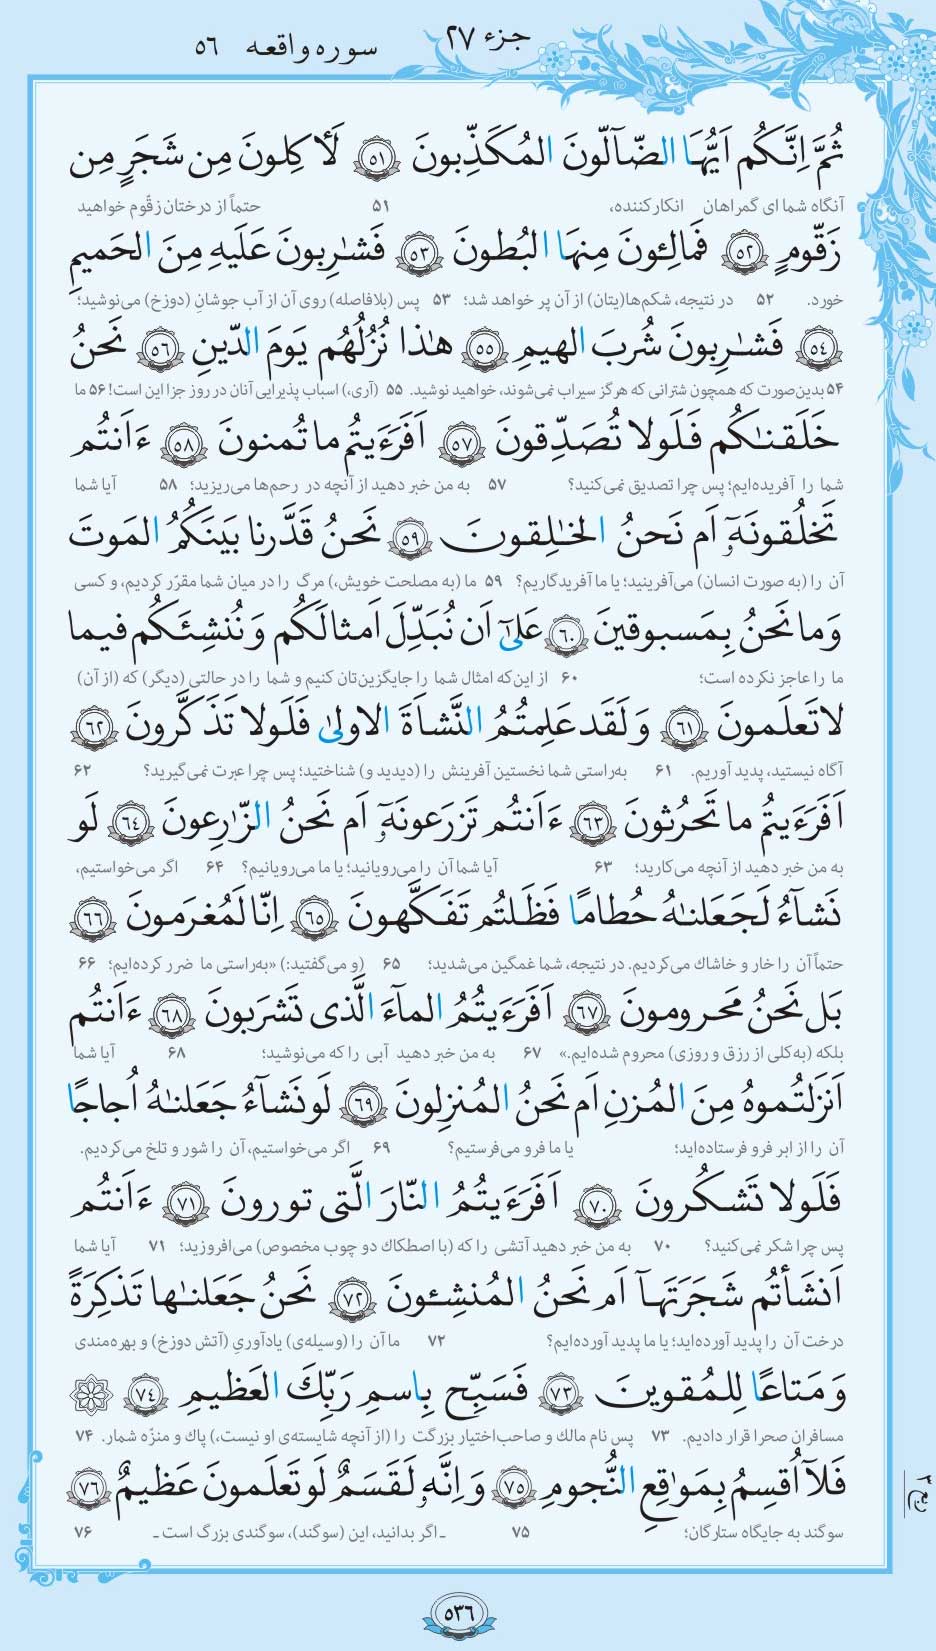 جزء ۲۷ سوره واقعه ۵۶
ثُمَّ اِنَّكُم اَيُّهَا الضّآلّونَ المُكَذِّبونَ ﴿٥١﴾ لَأٰكِلونَ مِن شَجَرٍ مِن
آنگاه شما ای گمراهان انکارکننده، ۵۱ حتماً از درختان زقّوم خواهید
زَقّومٍ ﴿٥٢﴾ فَمالِئونَ مِنهَا البُطونَ ﴿٥٣﴾ فَشٰرِبونَ عَلَيهِ مِنَ الحَميمِ
خورد. ۵۲ در نتیجه، شکم‌ها(یتان) از آن پر خواهد شد؛ ۵۳ پس (بلافاصله) روی آن از آب جوشانِ (دوزخ) می‌نوشید؛
﴿٥٤﴾ فَشٰرِبونَ شُربَ الهيمِ ﴿٥٥﴾ هٰذا نُزُلُهُم يَومَ الدّينِ ﴿٥٦﴾ نَحنُ
۵۴ بدین‌صورت که همچون شترانی که هرگز سیراب نمی‌شوند، خواهید نوشید. ۵۵ (آری،) اسباب پذیرایی آنان در روز جزا این است! ۵۶ ما
خَلَقنٰكُم فَلَولا تُصَدِّقونَ ﴿٥٧﴾ اَفَرَءَيتُم ما تُمنونَ ﴿٥٨﴾ ءَاَنتُم
شما را آفریده‌ایم؛ پس چرا تصدیق نمی‌کنید؟ ۵۷ به من خبر دهید از آنچه در رحم‌ها می‌ریزید؛ ۵۸ آیا شما
تَخلُقونَهٓ اَم نَحنُ الخٰلِقونَ ﴿٥٩﴾ نَحنُ قَدَّرنا بَينَكُمُ المَوتَ
آن را (به صورت انسان) می‌آفرینید؛ یا ما آفریدگاریم؟ ۵۹ ما (به مصلحت خویش،) مرگ را در میان شما مقرّر کردیم، و کسی
وَ ما نَحنُ بِمَسبوقينَ ﴿٦٠﴾ عَلىٰٓ اَن نُبَدِّلَ اَمثالَكُم وَ نُنشِئَكُم فيما
ما را عاجز نکرده است؛ ۶۰ از این‌که امثال شما را جایگزین‌تان کنیم و شما را در حالتی (دیگر) که (از آن)
لا تَعلَمونَ ﴿٦١﴾ وَ لَقَد عَلِمتُمُ النَّشاَةَ الاولىٰ فَلَولا تَذَكَّرونَ ﴿٦٢﴾
آگاه نیستید، پدید آوریم. ۶۱ به‌راستی شما نخستین آفرینش را (دیدید و) شناختید؛ پس چرا عبرت نمی‌گیرید؟ ۶۲
اَفَرَءَيتُم ما تَحرُثونَ ﴿٦٣﴾ ءَاَنتُم تَزرَعونَهٓ اَم نَحنُ الزّٰرِعونَ ﴿٦٤﴾ لَو
به من خبر دهید از آنچه می‌کارید؛ ۶۳ آیا شما آن را می‌رویانید؛ یا ما می‌رویانیم؟ ۶۴ اگر می‌خواستیم،
نَشآءُ لَجَعَلنٰهُ حُطامًا فَظَلتُم تَفَكَّهونَ ﴿٦٥﴾ اِنّا لَمُغرَمونَ ﴿٦٦﴾
حتماً آن را خار و خاشاک می‌کردیم. در نتیجه، شما غمگین می‌شدید؛ ۶۵ (و می‌گفتید:) «به‌راستی ما ضرر کرده‌ایم؛ ۶۶
بَل نَحنُ مَحرومونَ ﴿٦٧﴾ اَفَرَءَيتُمُ المآءَ الَّذى تَشرَبونَ ﴿٦٨﴾ ءَاَنتُم
بلکه (به‌کلی از رزق و روزی) محروم شده‌ایم.» ۶۷ به من خبر دهید آبی را که می‌نوشید؛ ۶۸ آیا شما
اَنزَلتُموهُ مِنَ المُزنِ اَم نَحنُ المُنزِلونَ ﴿٦٩﴾ لَو نَشآءُ جَعَلنٰهُ اُجاجًا
آن را از ابر فرو فرستاده‌اید؛ یا ما فرو می‌فرستیم؟ ۶۹ اگر می‌خواستیم، آن را شور و تلخ می‌کردیم.
فَلَولا تَشكُرونَ ﴿٧٠﴾ اَفَرَءَيتُمُ النّارَ الَّتى تورونَ ﴿٧١﴾ ءَاَنتُم
پس چرا شکر نمی‌کنید؟ ۷۰ به من خبر دهید آتشی را که (با اصطکاک دو چوب مخصوص) می‌افروزید؛ ۷۱ آیا شما
اَنشَأتُم شَجَرَتَهآ اَم نَحنُ المُنشِئونَ ﴿٧٢﴾ نَحنُ جَعَلنٰها تَذكِرَةً
درخت آن را پدید آورده‌اید؛ یا ما پدید آورده‌ایم؟ ۷۲ ما آن را (وسیله‌ی) یادآوریِ (آتش دوزخ) و بهره‌مندی
وَ مَتاعًا لِلمُقوينَ ﴿٧٣﴾ فَسَبِّح بِاسمِ رَبِّكَ العَظيمِ ﴿٧٤﴾
مسافرانِ صحرا قرار دادیم. ۷۳ پس نام مالک و صاحب‌اختیار بزرگت را (از آنچه شایسته‌ی او نیست،) پاک و منزّه شمار. ۷۴
فَلآ اُقسِمُ بِمَوٰقِعِ النُّجومِ ﴿٧٥﴾ وَ اِنَّهٗ لَقَسَمٌ لَو تَعلَمونَ عَظيمٌ ﴿٧٦﴾
سوگند به جایگاه ستارگان؛ ۷۵ ـ اگر بدانید، این (سوگند)، سوگندی بزرگ است ـ ۷۶
ربع ۳
۵۳۶